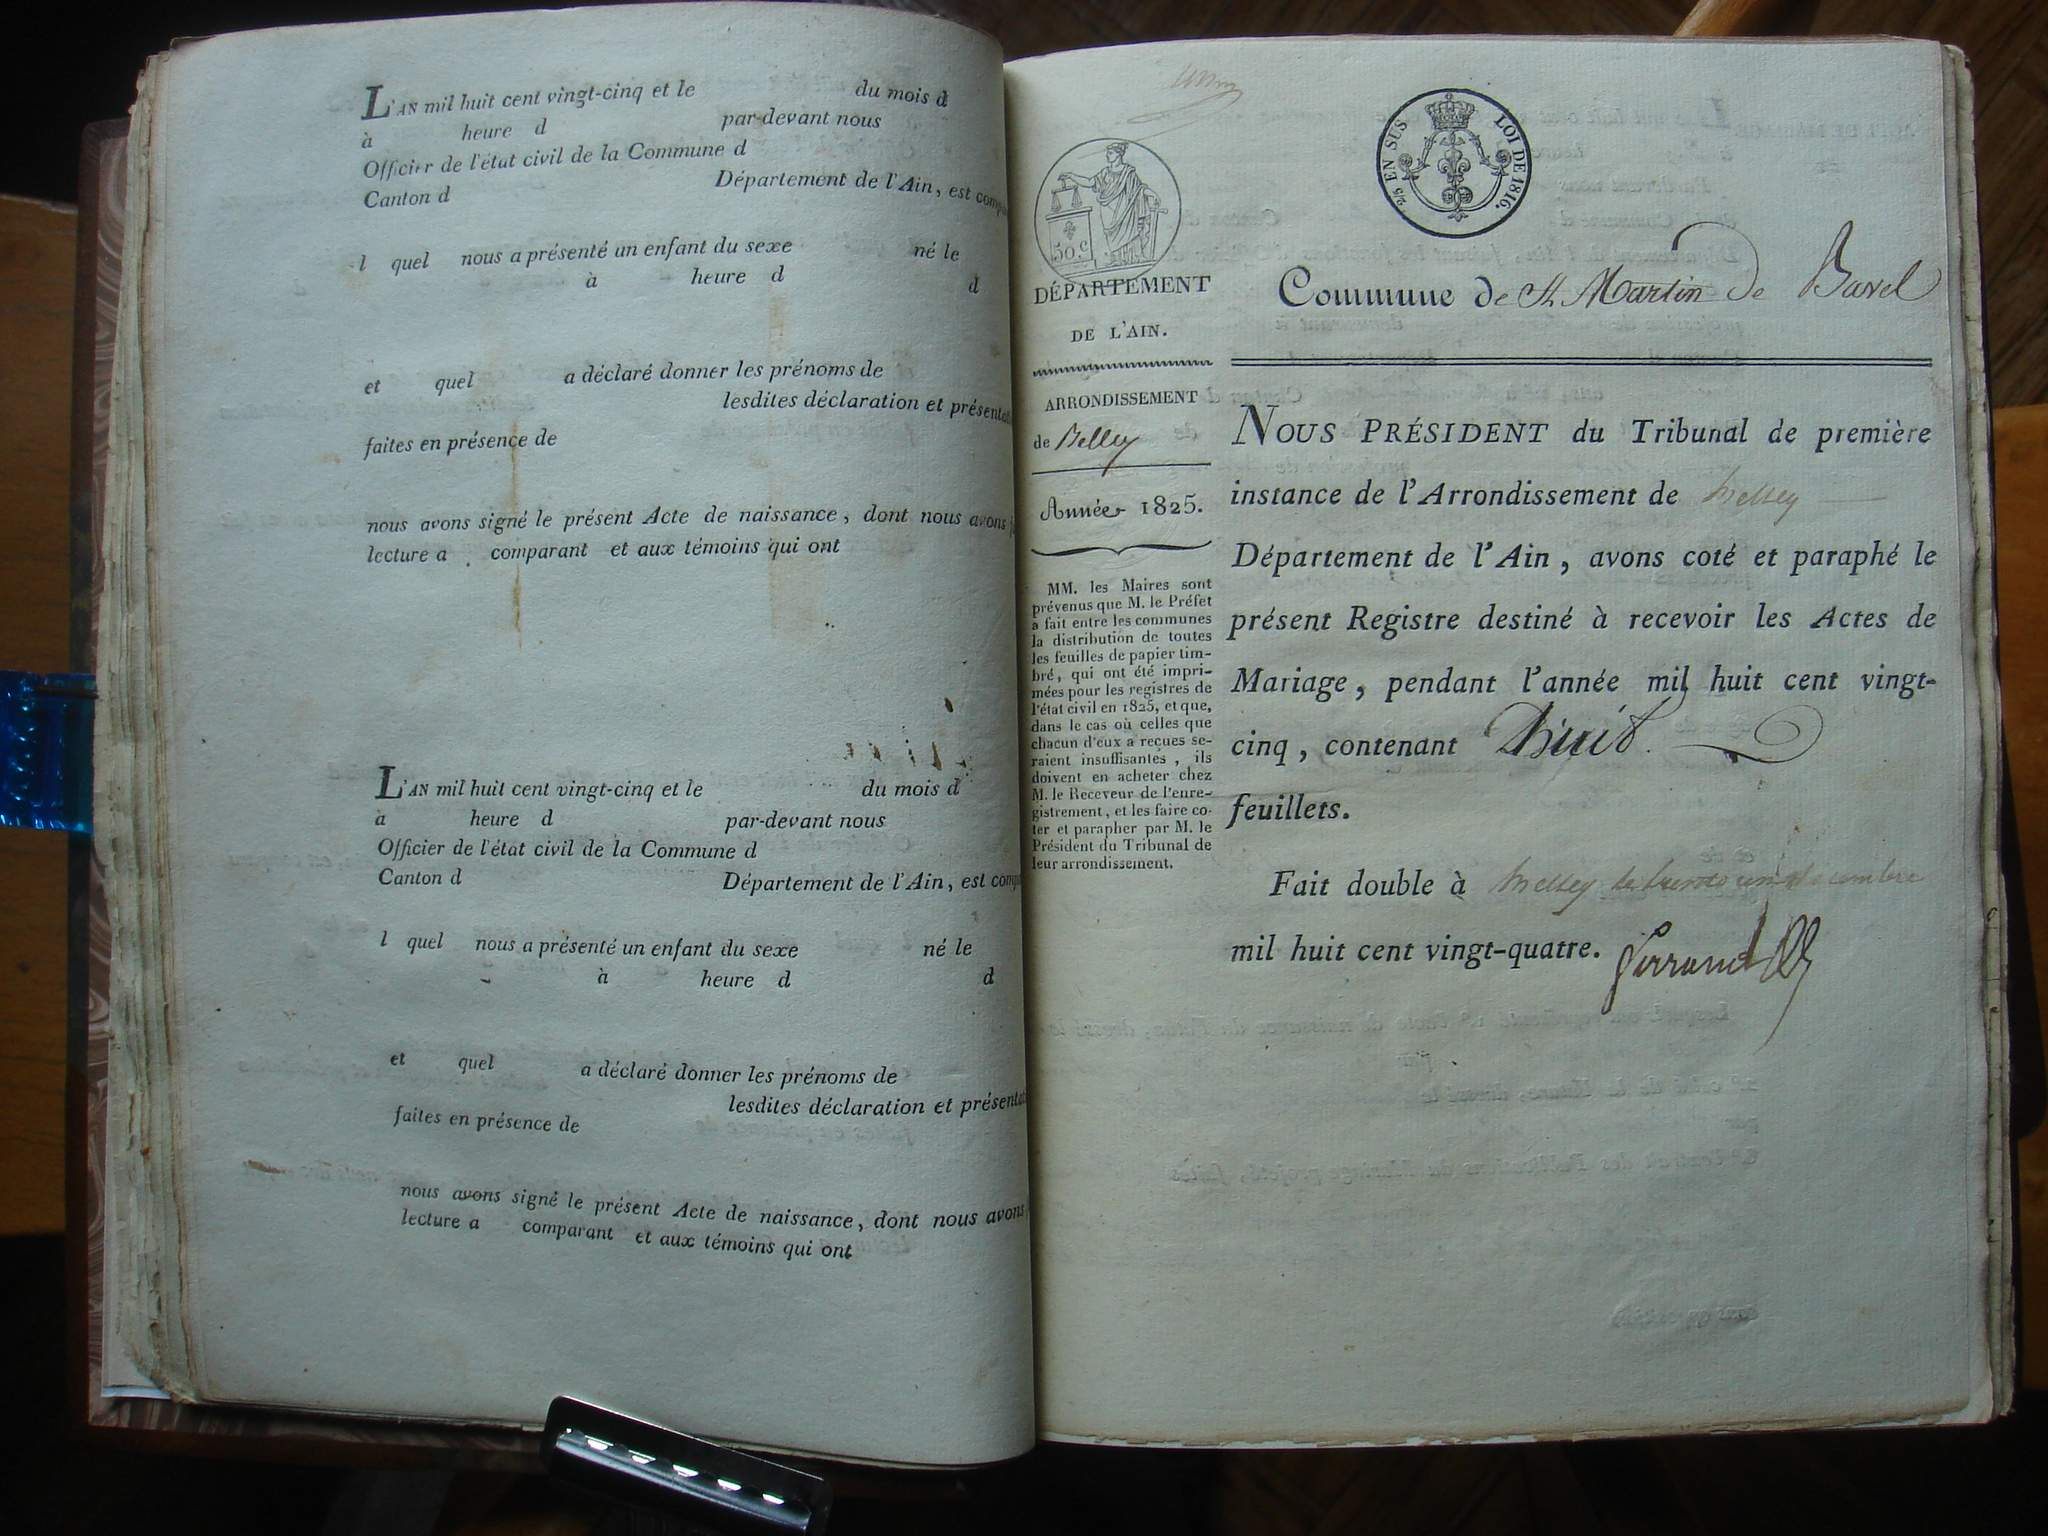 L'AN mil huit cent vingt-cinq et le du mois d
à heure d par-devant nous
Officier de l'état civil de la Commune d
Canton d Département de l'Ain, est comp
l quel nous a présenté un enfant du sexe né le
à heure d d
et quel a déclaré donner les prénoms de
lesdites déclaration et présentat
faites en présence de
nous avons signé le présent Acte de naissance, dont nous avons f
lecture a comparant et aux témoins qui ont
L'AN mil huit cent vingt-cinq et le du mois d
à heure d par-devant nous
Officier de l'état civil de la Commune d
Canton d Département de l'Ain, est comp
l quel nous a présenté un enfant du sexe né le
à heure d d
et quel a déclaré donner les prénoms de
lesdites déclaration et présentat
faites en présence de
nous avons signé le présent Acte de naissance, dont nous avons
lecture a comparant et aux témoins qui ont
50.c
2/5 EN SUS LOI DE 1816.
DÉPARTEMENT
DE L'AIN.
ARRONDISSEMENT
de Belley
Année 1825.
MM. les Maires sont
prévenus que M. le Préfet
a fait entre les communes
la distribution de toutes
les feuilles de papier tim-
bré, qui ont été impri-
mées pour les registres de
l'état civil en 1825, et que,
dans le cas où celles que
chacun d'eux a reçues se-
raient insuffisantes, ils
doivent en acheter chez
M. le Receveur de l'enre-
gistrement, et les faire co-
ter et parapher par M. le
Président du Tribunal de
leur arrondissement.
Commune de St Martin de Bavel
NOUS PRÉSIDENT du Tribunal de première
instance de l'Arrondissement de Belley
Département de l'Ain, avons coté et paraphé le
présent Registre destiné à recevoir les Actes de
Mariage, pendant l'année mil huit cent vingt-
cinq, contenant huit
feuillets.
Fait double à Belley le trente un décembre
mil huit cent vingt-quatre.